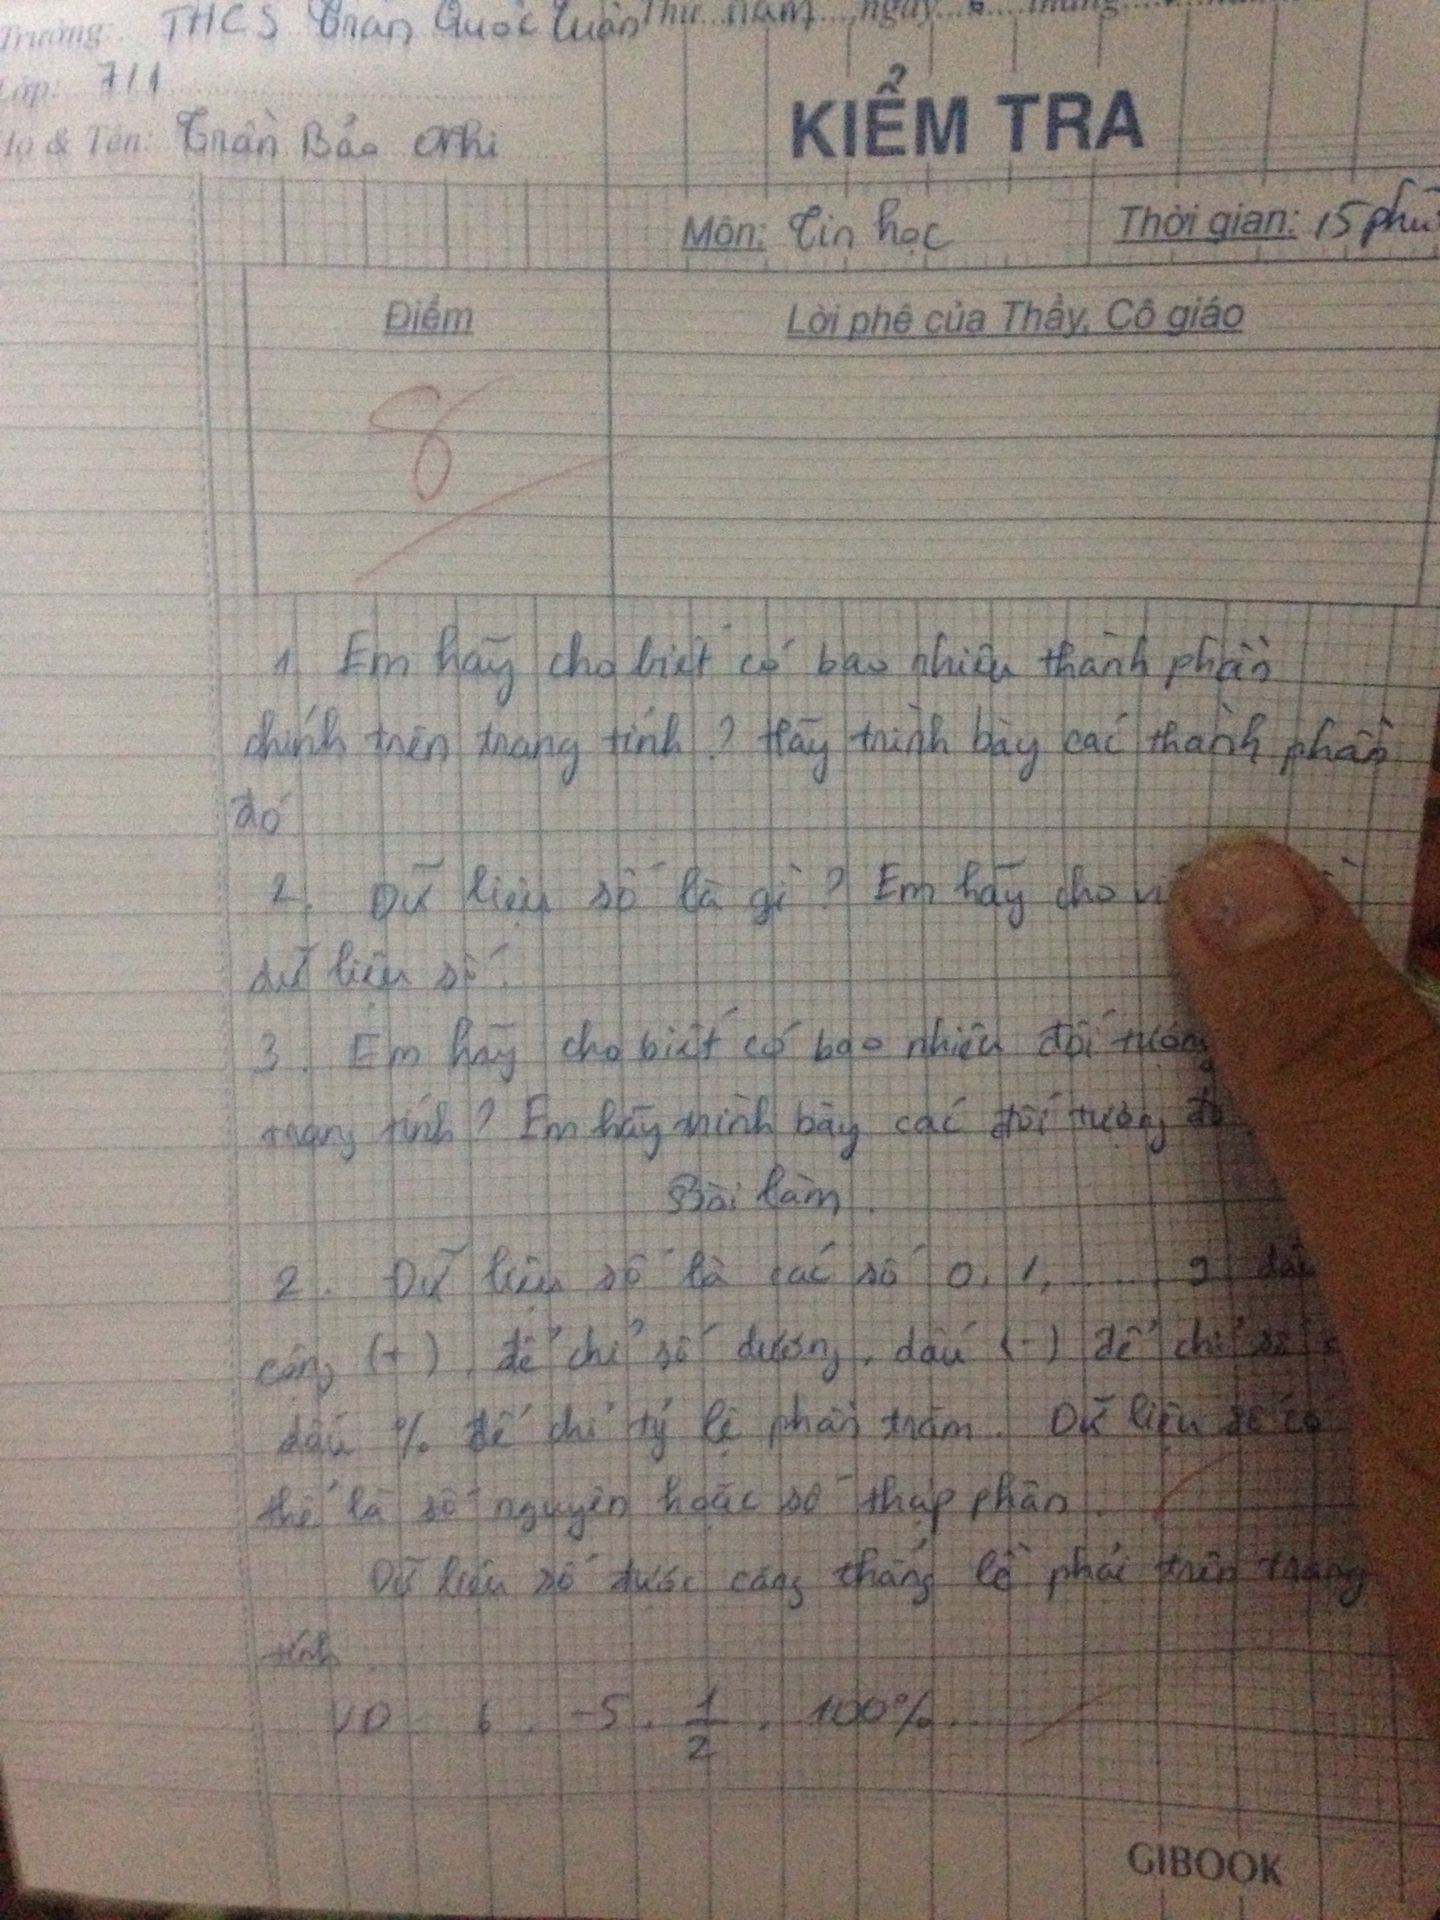 Trường: THCS Trần Quốc Tuấn Thứ năm, ngày tháng
Lớp: 7/1
Họ & Tên: Trần Bảo Nhi
KIỂM TRA
Môn: Tin học Thời gian: 15 phút
Điểm Lời phê của Thầy, Cô giáo
8
1. Em hãy cho biết có bao nhiêu thành phần
chính trên trang tính? Hãy trình bày các thành phần
đó
2. Dữ liệu số là gì? Em hãy cho
dữ liệu số.
3. Em hãy cho biết có bao nhiêu đối tượng
trang tính? Em hãy trình bày các đối tượng đó
Bài làm
2. Dữ liệu số là các số 0, 1, ..... 9 dấu
cộng (+) để chỉ số dương, dấu (-) để chỉ số
dấu % để chỉ tỷ lệ phần trăm. Dữ liệu số có
thể là số nguyên hoặc số thập phân.
Dữ liệu số được căng thẳng lề phải trên trang
tính
VD 6, -5, 1/2, 100%...
GIBOOK